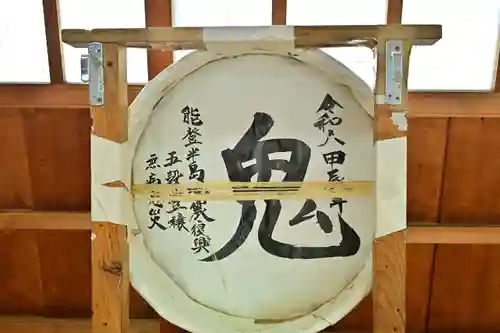 令和六甲辰年
鬼
能登半島地震復興
五穀豊穣
無病息災